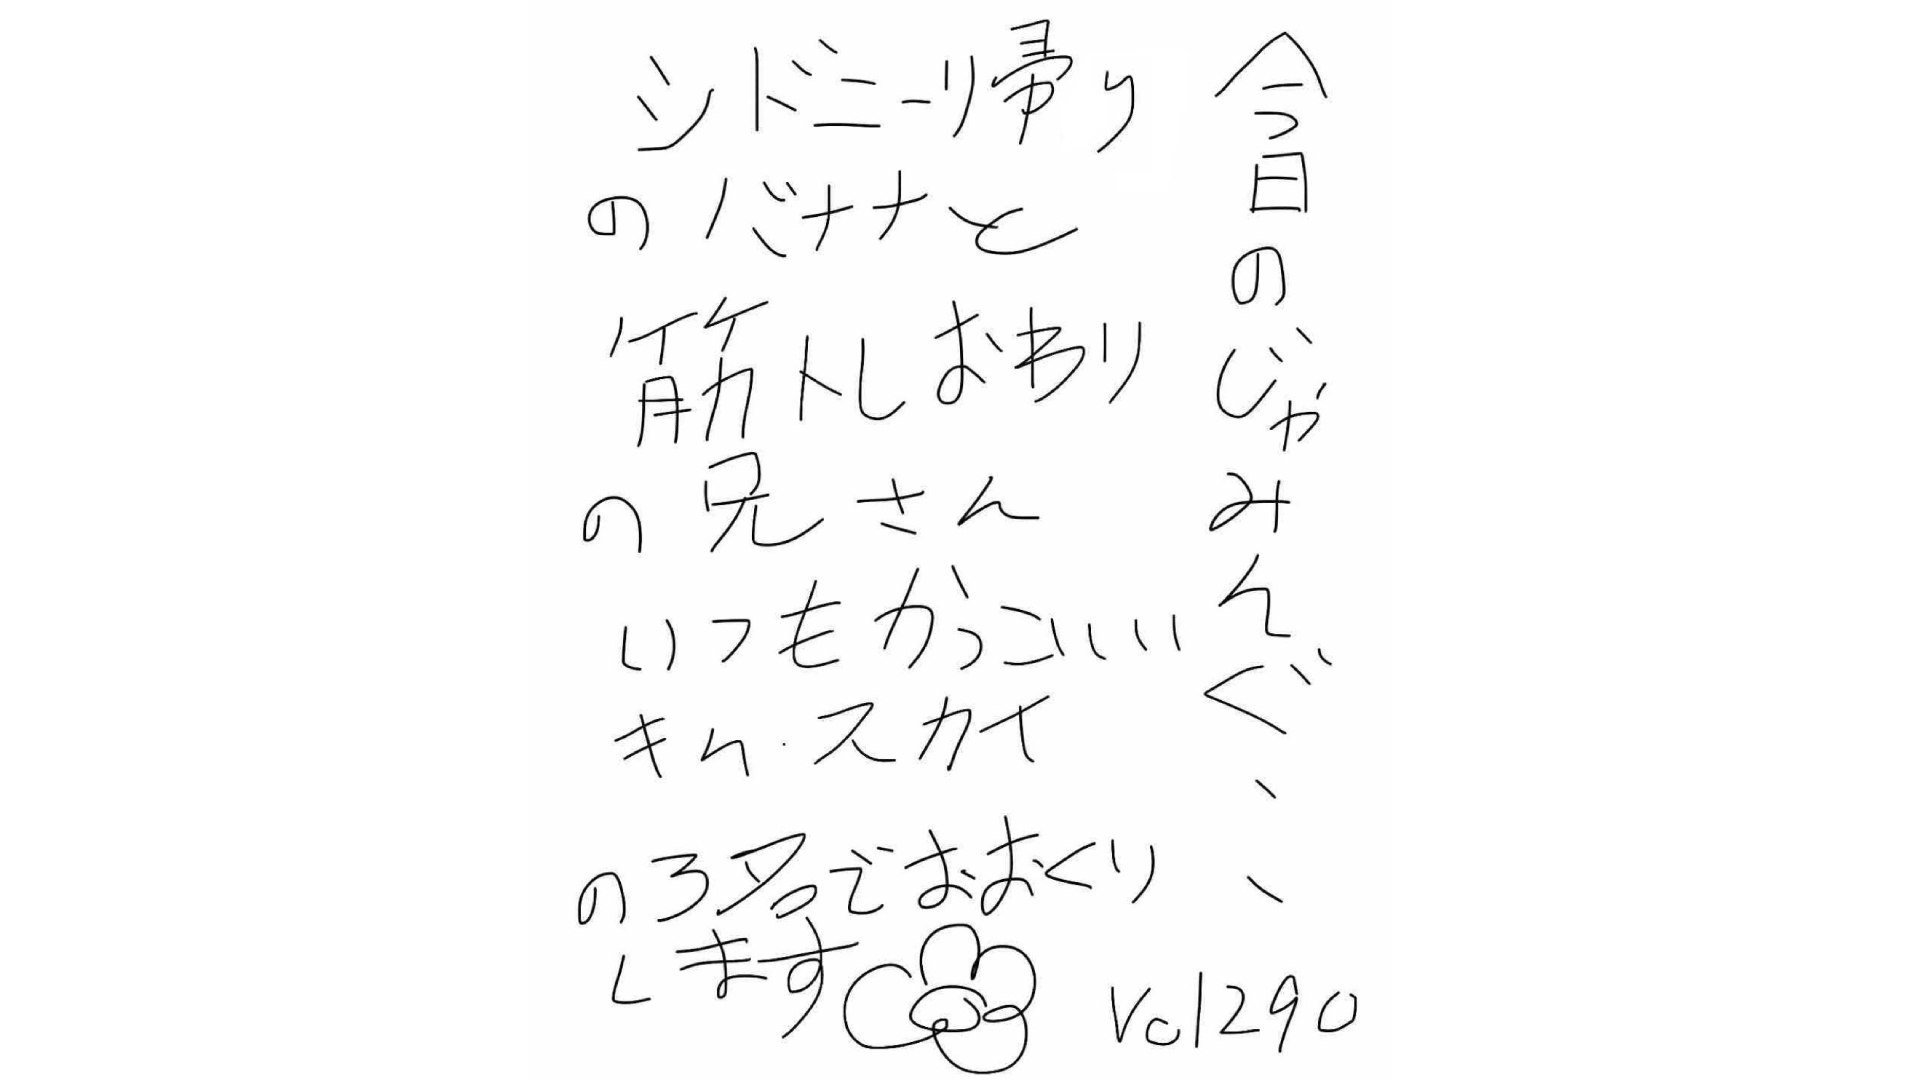 今日のじゃみんぐ、、
シドニーり帰り
のバナナと
筋トしおわり
の兄さん
いつもかっこいいい
きん.スカイ
の3名でおおくり
します
Vol290